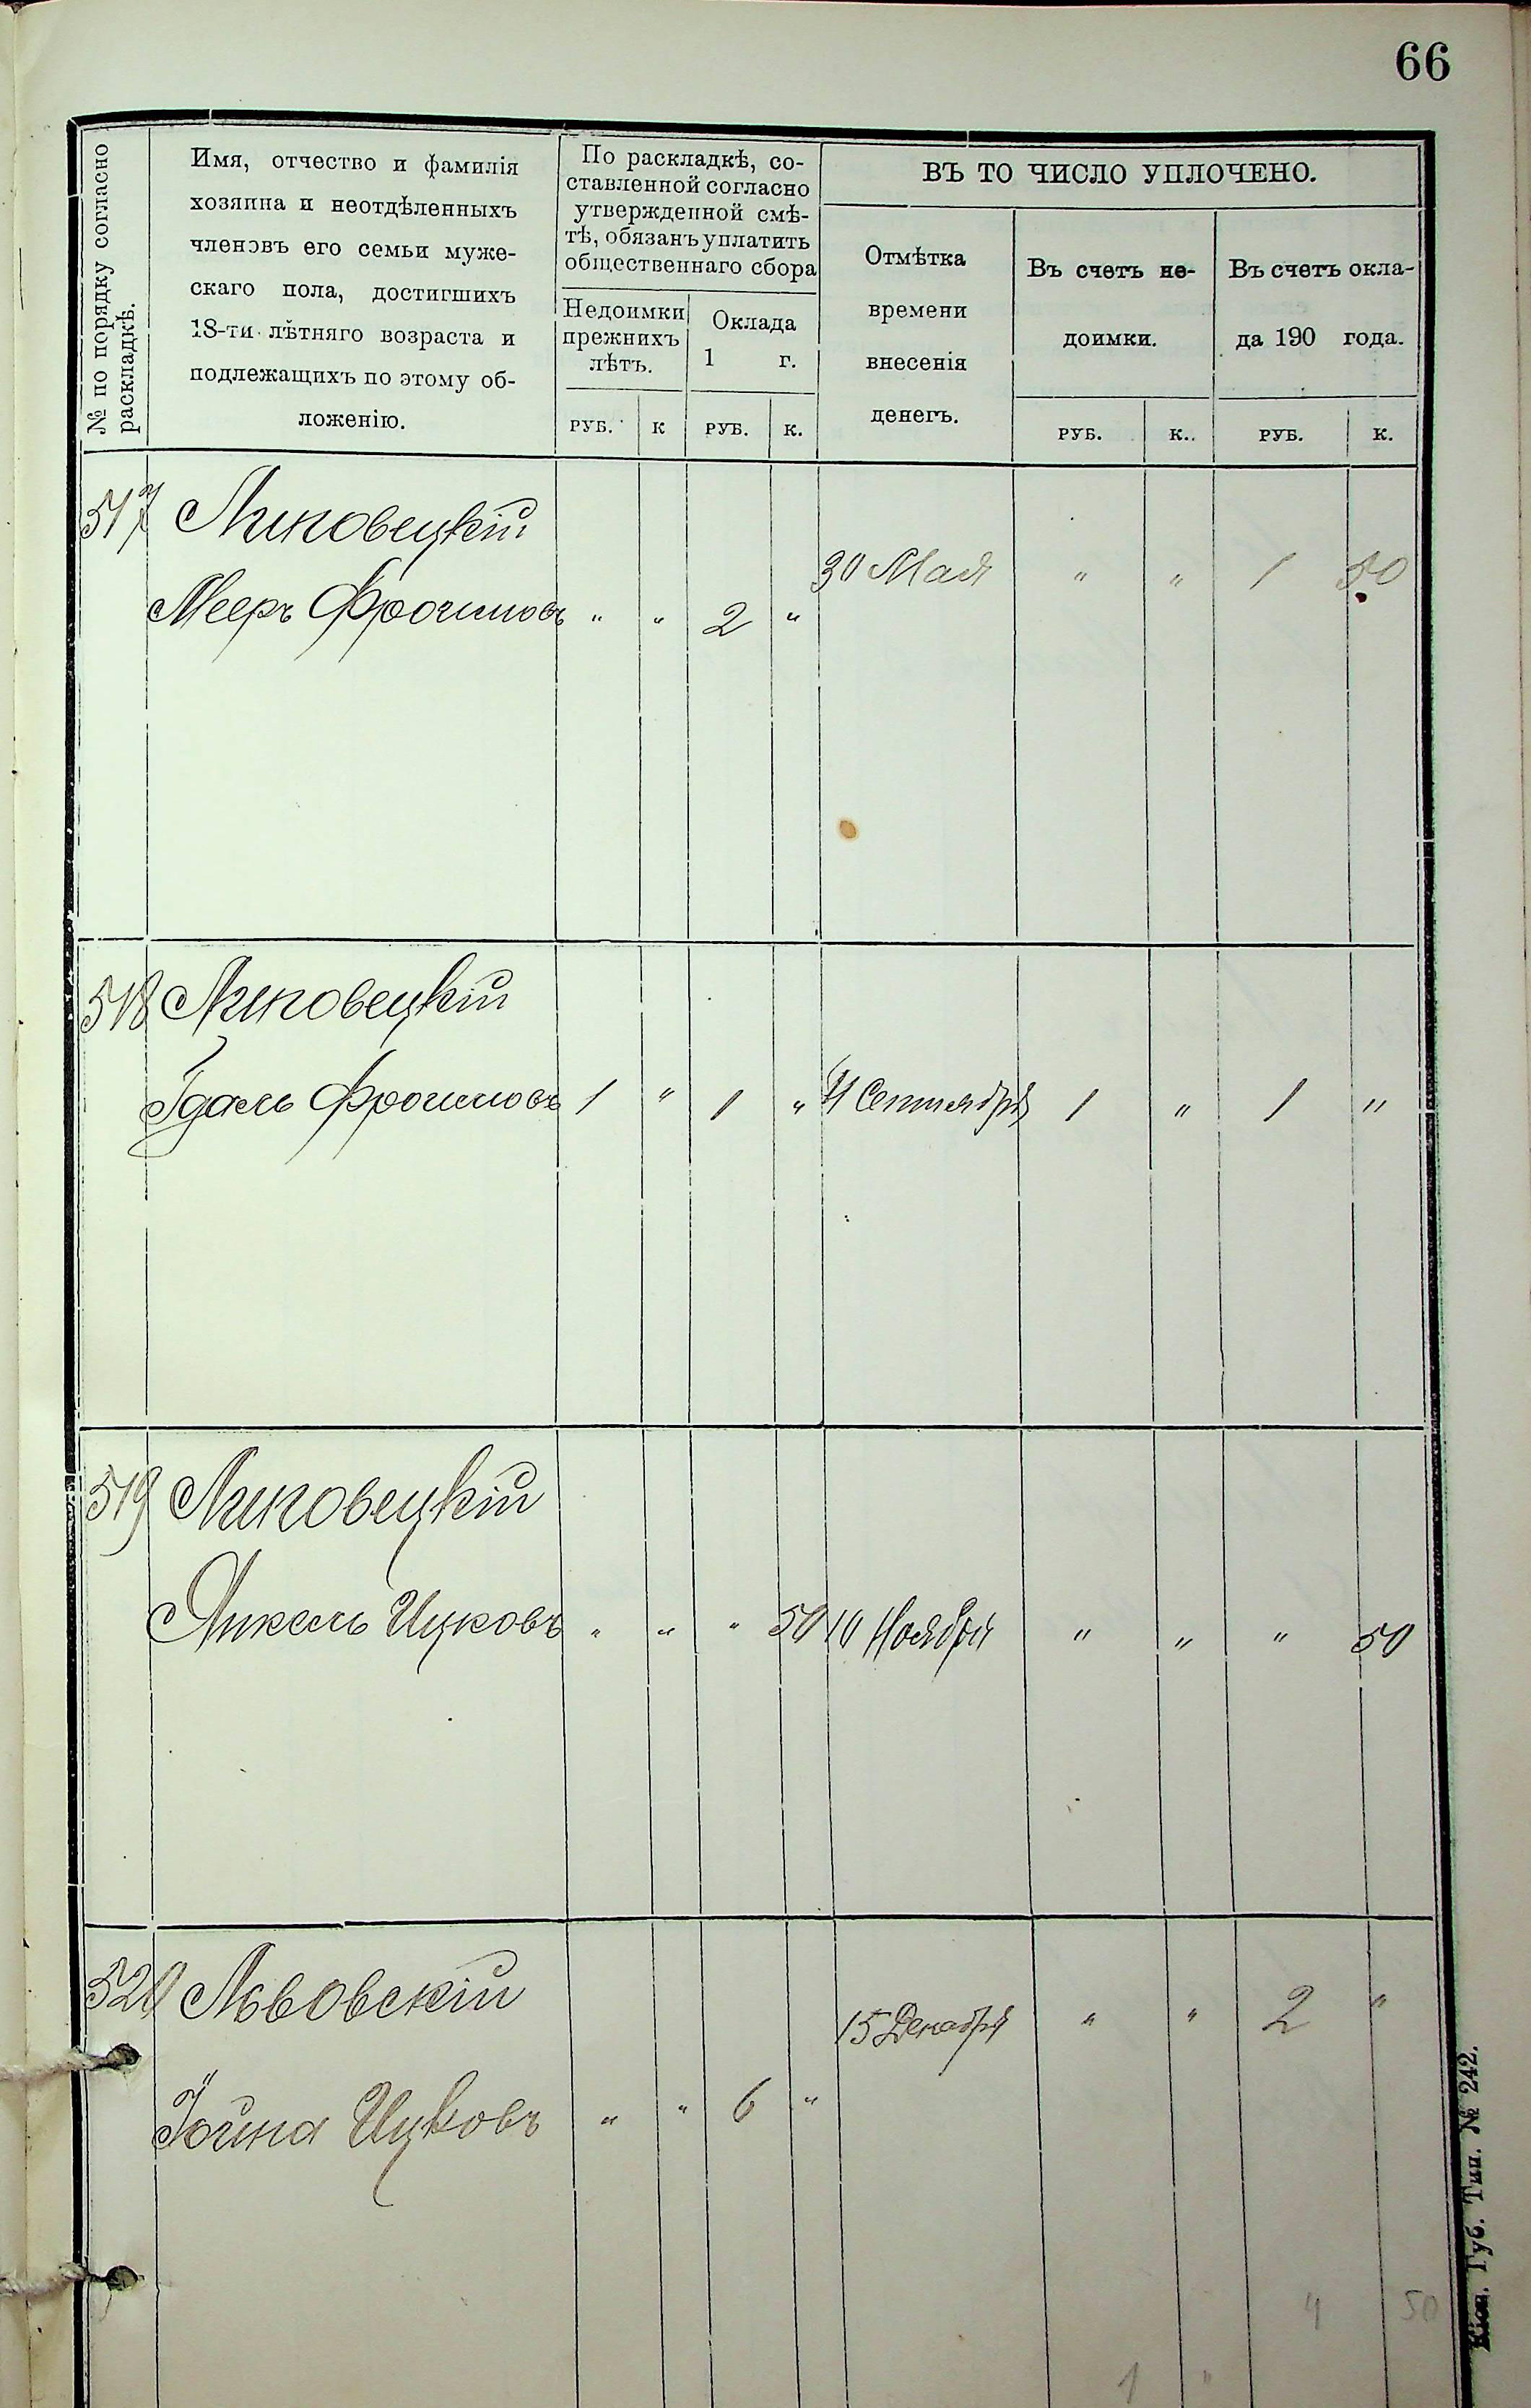 66
№ по порядку согласно
раскладкѣ.
Имя, отчество и фамилія
хозяина и неотдѣленныхъ
членовъ его семьи муже-
скаго пола, достигшихъ
18-ти лѣтняго возраста и
подлежащихъ по этому об-
ложенію.
По раскладкѣ, со-
ставленной согласно
утвержденной смѣ-
тѣ, обязанъ уплатить
общественнаго сбора
Недоимки
прежнихъ
лѣтъ.
Оклада
1 г.
ВЪ ТО ЧИСЛО УПЛОЧЕНО.
Отмѣтка
времени
внесенія
денегъ.
Въ счетъ не-
доимки.
Въ счетъ окла-
да 190 года.
РУБ. К РУБ. К. РУБ. К. РУБ. К.
517 Липовецкій
30 Мая " " 1 50
Мееръ Фроимовъ " " 2 "
518 Липовецкій
Гдаль Фроимовъ 1 " 1 " 11 Сентября 1 " 1 "
519 Липовецкій
Янкель Ицковъ " " " 50 10 Ноября " " " 50
520 Львовскій
15 Декабря " " 2 "
Іойна Ицковъ " " 6 "
4 50
1 "
Кіев. Губ. Тип. № 242.